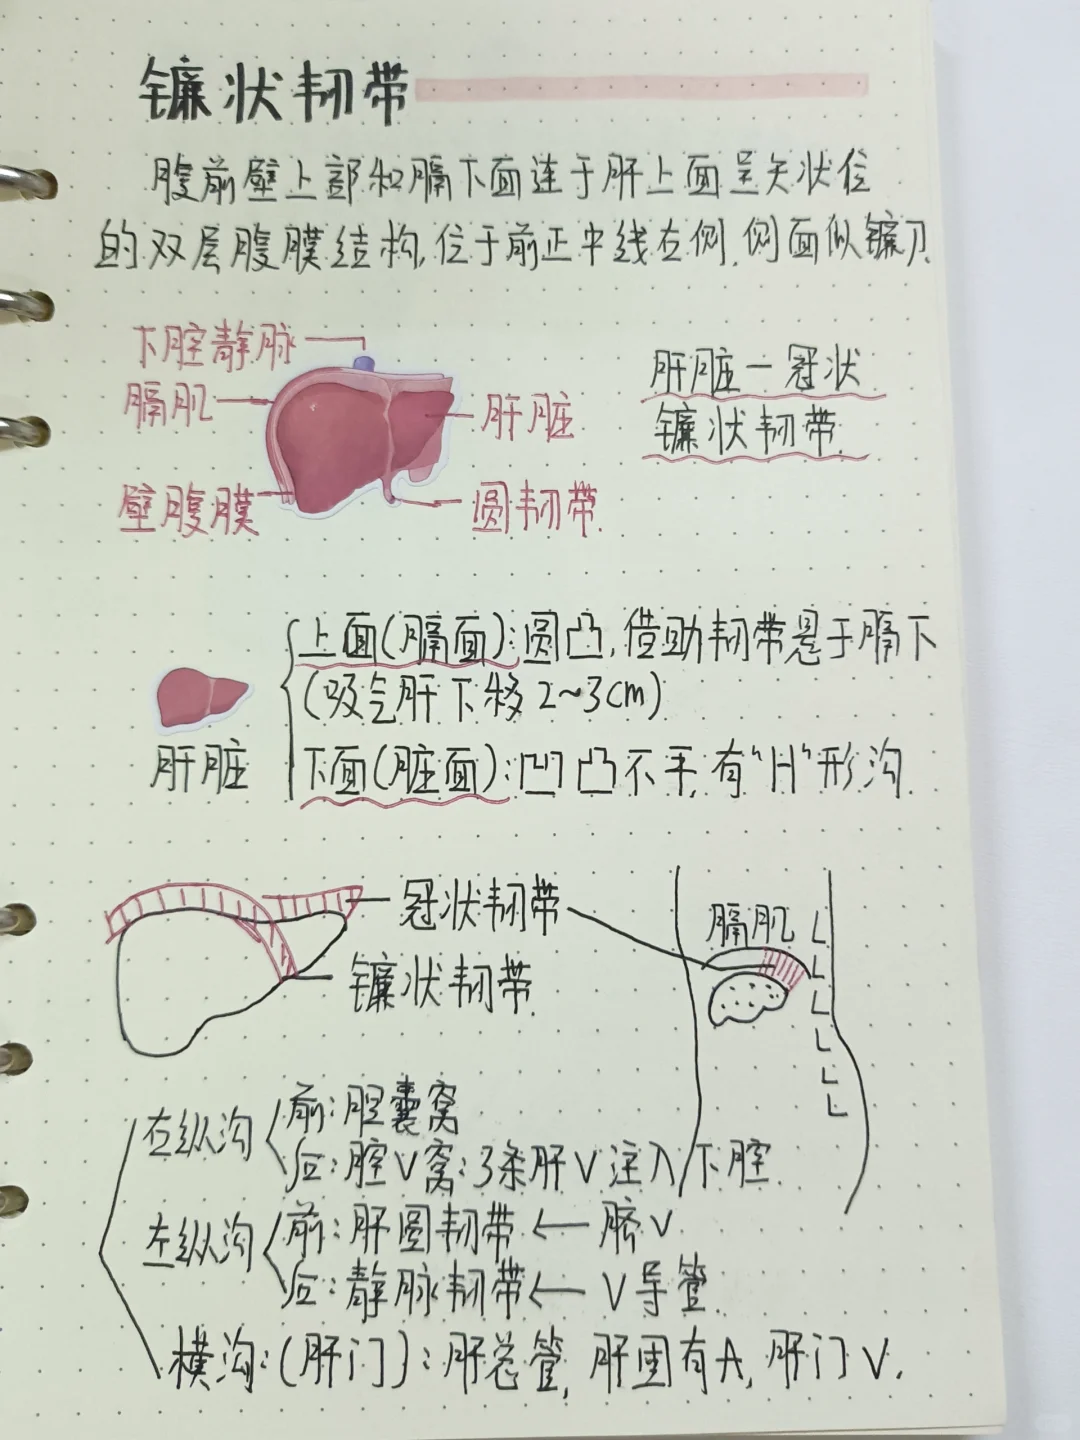 镰状韧带
腹前壁上部和膈下面连于肝上面呈矢状位
的双层腹膜结构,位于前正中线右侧,侧面似镰刀.
下腔静脉
膈肌
肝脏
壁腹膜
圆韧带
肝脏—冠状
镰状韧带
上面(膈面):圆凸,借助韧带悬于膈下
(吸气肝下移2~3cm)
肝脏
下面(脏面):凹凸不平,有"H"形沟
冠状韧带
镰状韧带
膈肌
右纵沟
前:胆囊窝
后:腔V窝:3条肝V注入下腔
左纵沟
前:肝圆韧带←脐V
后:静脉韧带←V导管
横沟:(肝门):肝总管,肝固有A,肝门V.